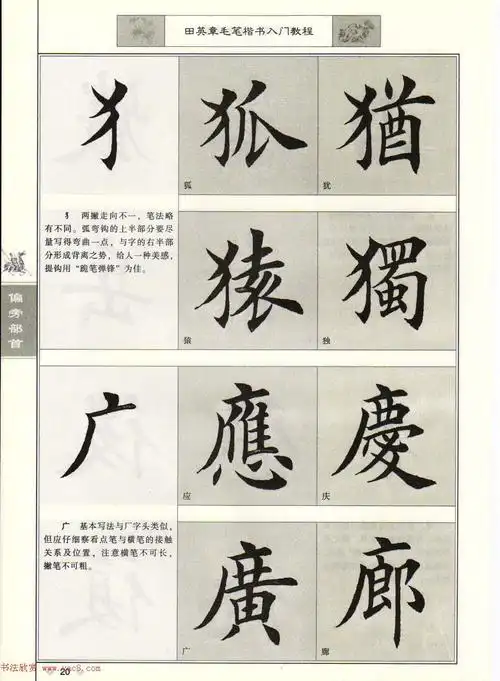 田英章毛笔楷书入门教程
犭
狐
猶
狐
犹
犭 两撇走向不一，笔法略
有不同。弧弯钩的上半部分要尽
量写得弯曲一点，与字的右半部
分形成背离之势，给人一种美感，
提钩用“跪笔弹锋”为佳。
猿
獨
猿
独
偏旁部首
广
應
慶
应
庆
广 基本写法与厂字头类似，
但应仔细察看点笔与横笔的接触
关系及位置，注意横笔不可长，
撇笔不可粗。
廣
廊
广
廊
书法欣赏 www.yac8.com
20